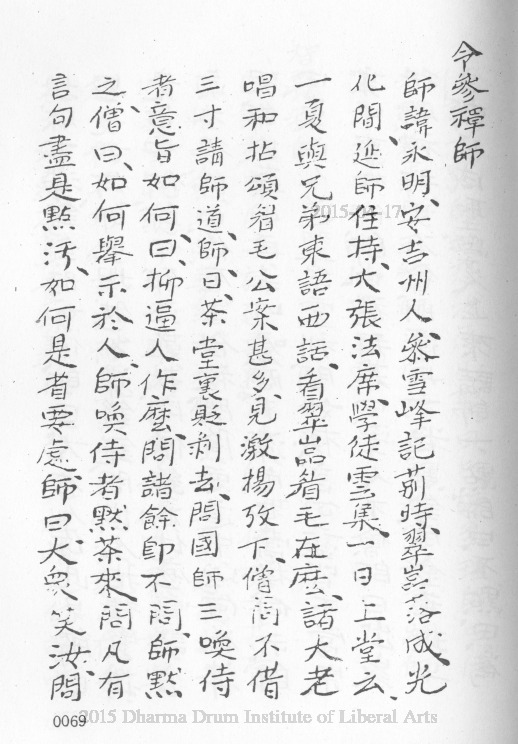 令參禪師
師諱永明、安吉州人、叅雪峰記莂時、翠岩落成、光
化間、延師住持、大張法席、學徒雲集、一日上堂云、
一夏與兄弟東語西話、看翠嵓眉毛在麽、諸大老
唱和拈頌眉毛公案甚多、見激揚攷卞、僧問不借
三寸請師道、師曰、茶堂裏貶剥去、問國師三喚侍
者意旨如何、曰、抑逼人作麽、問諸餘即不問、師默
之、僧曰、如何舉示於人、師喚侍者點茶來、問凡有
言句盡是點汚、如何是省要處、師曰、大衆笑汝、問
0069
2015-04-17
2015 Dharma Drum Institute of Liberal Arts